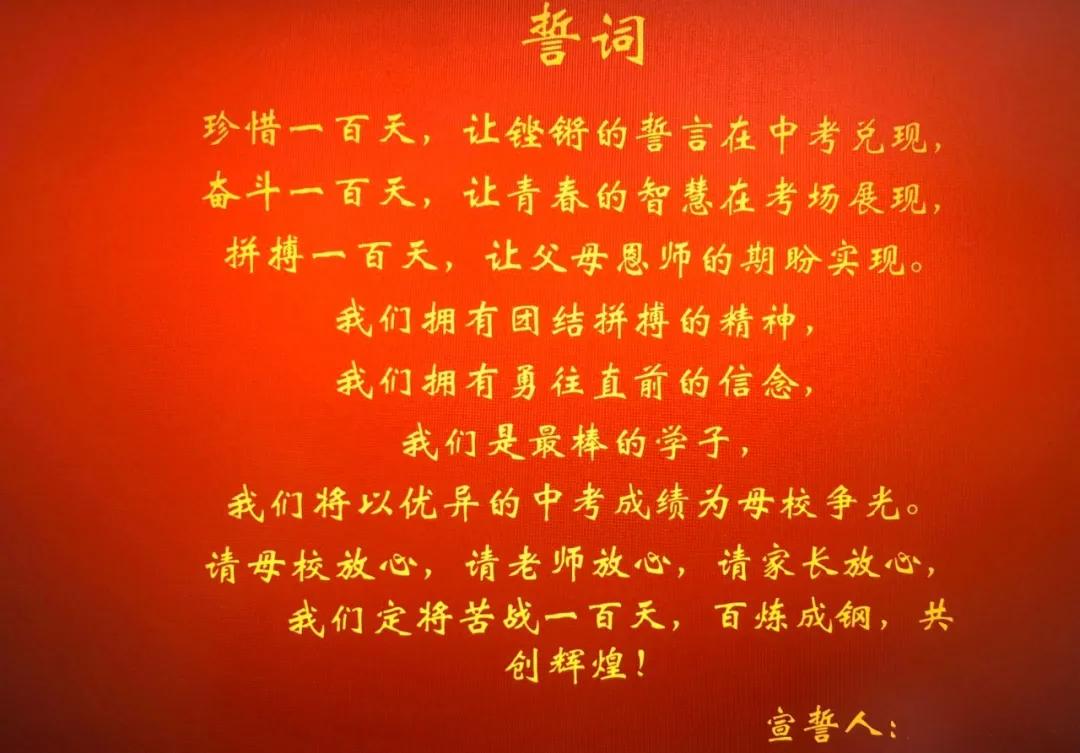 誓词
珍惜一百天，让铿锵的誓言在中考兑现，
奋斗一百天，让青春的智慧在考场展现，
拼搏一百天，让父母恩师的期盼实现。
我们拥有团结拼搏的精神，
我们拥有勇往直前的信念，
我们是最棒的学子，
我们将以优异的中考成绩为母校争光。
请母校放心，请老师放心，请家长放心，
我们定将苦战一百天，百炼成钢，共
创辉煌！
宣誓人：